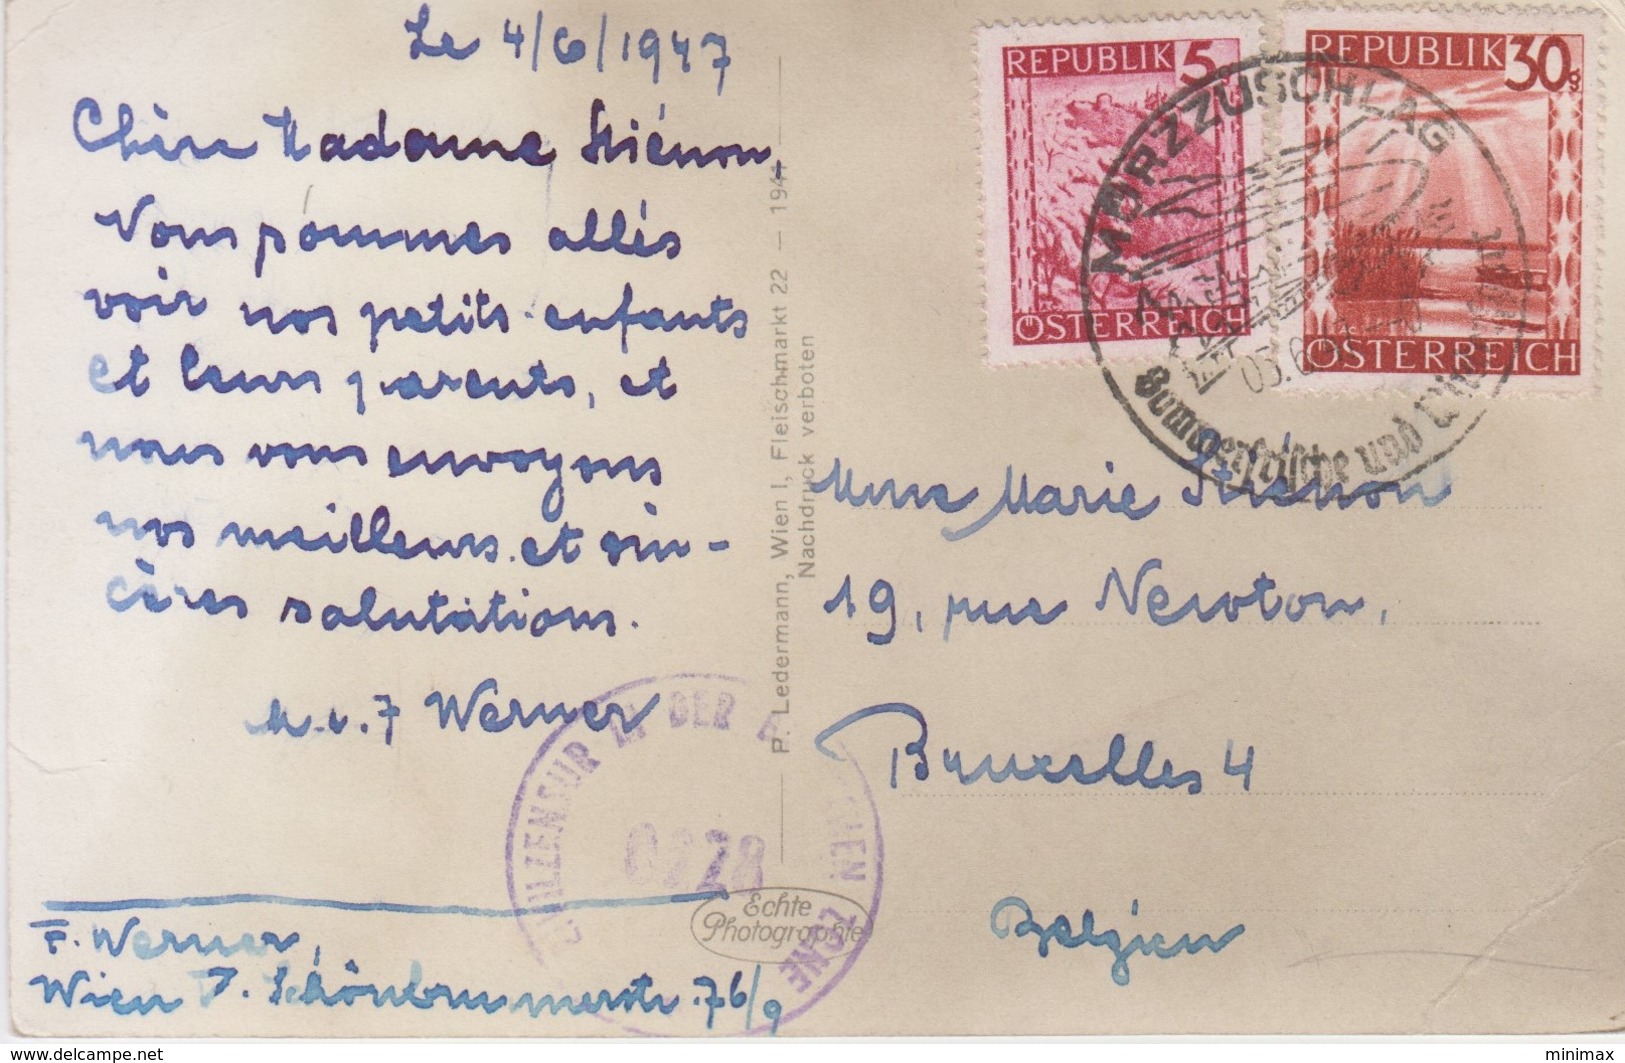 Le 4/6/1947
Chère Madame Stiénon,
Nous sommes allés
voir nos petits-enfants
et leurs parents, et
nous vous envoyons
nos meilleurs et sin-
cères salutations.
M. e. F Werner
F. Werner,
Wien Schönbrunnerstr. 76/9
P. Ledermann, Wien I, Fleischmarkt 22 — 1947
Nachdruck verboten
Echte
Photographie
ZIVILZENSUR IN DER ZONE
0228
REPUBLIK 5
ÖSTERREICH
REPUBLIK 30g
ÖSTERREICH
MÜRZZUSCHLAG
05.6.
Sommerfrische und
Mme Marie Stiénon
19, rue Newton,
Bruxelles 4
Belgien
www.delcampe.net
minimax